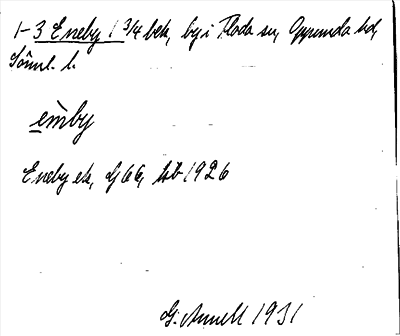 1-3 Eneby 1 3/4 bek, by i Floda sn, Oppunda hd,
Söml. l.
enby
Eneby ek, GGG, kb 1926
G. Annell 1931